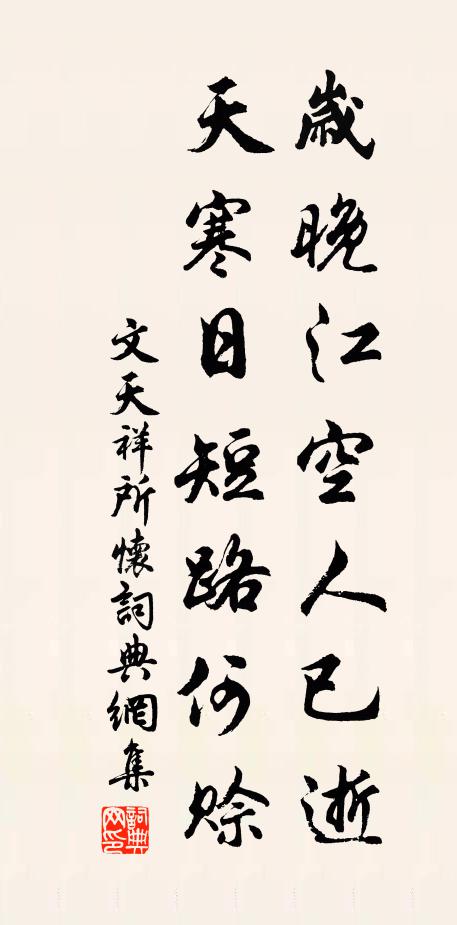 歲晚江空人已逝
天寒日短路何賒
文天祥所懷詞典網集
詞典網印